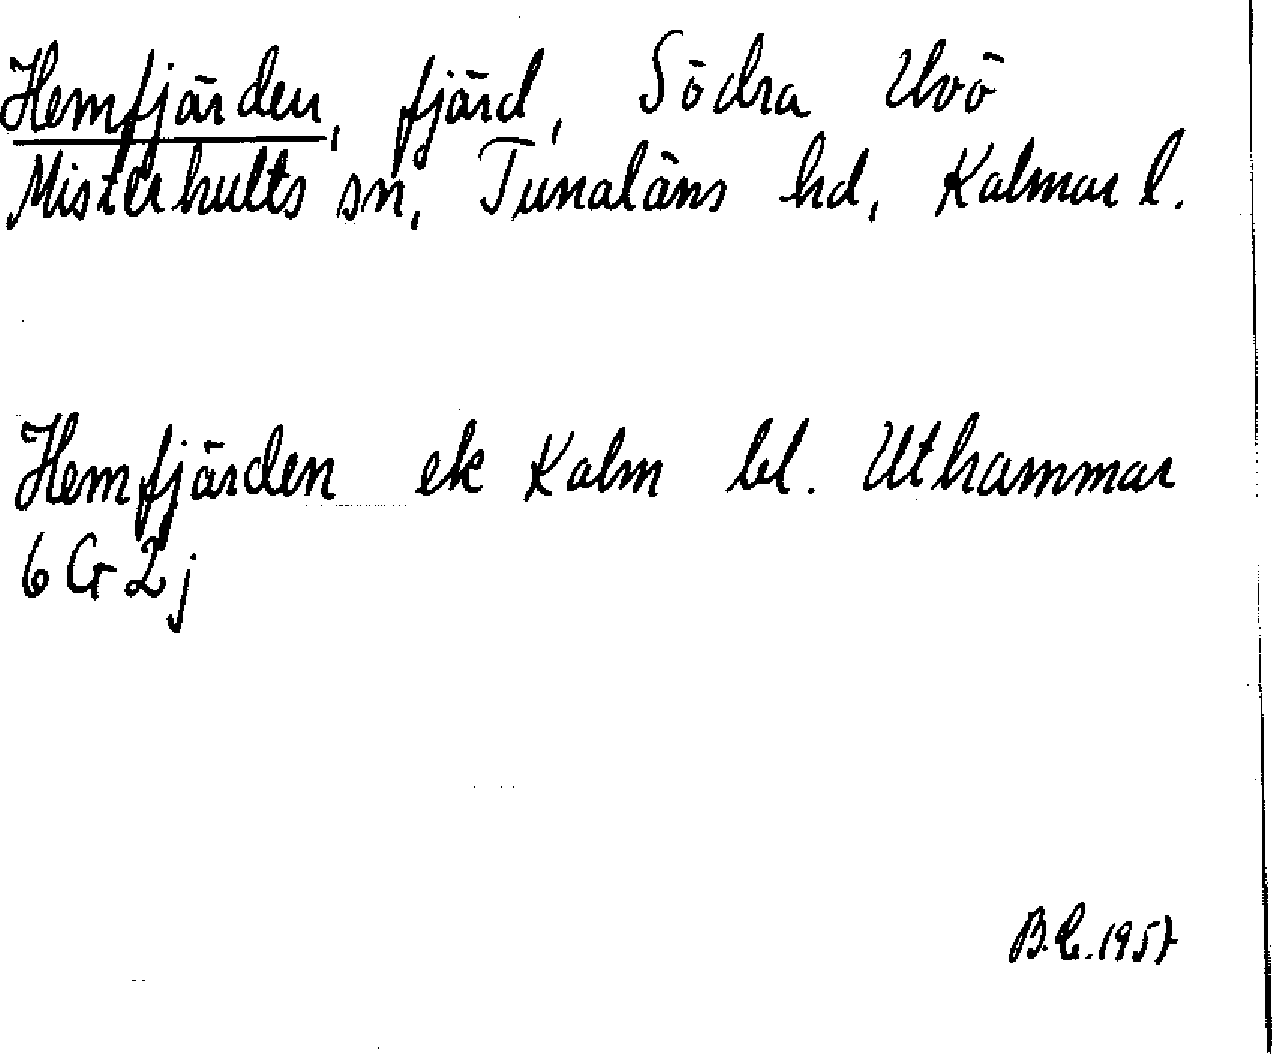 Hemfjärden, fjärd, Södra Uvö
Misterhults sn, Tunaläns hd, Kalmar l.
Hemfjärden ek Kalm bl. Uthammar
6 G 2 j
B.E. 1957